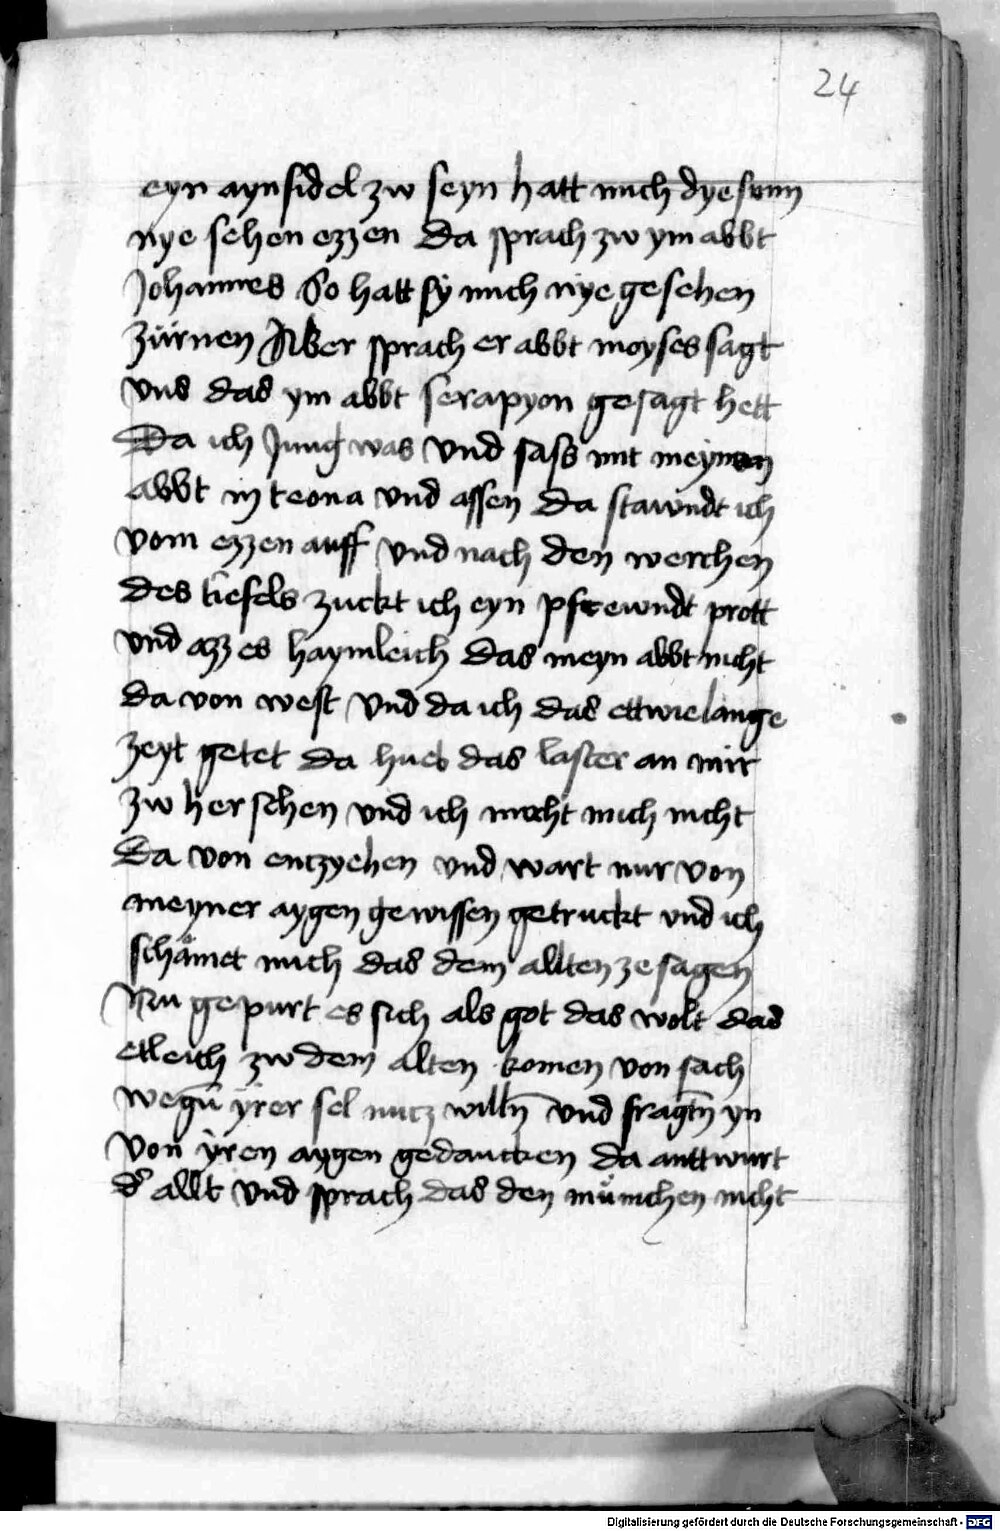 24
eyn aynsidel zw seyn hatt mich dye sunn
nye sehen ezzen Da sprach zw ym abbt
Johannes So hatt sy mich nye gesehen
zürnen Aber sprach er abbt moyses sagt
vns das ym abbt serapyon gesagt hett
Da ich Jung was vnd sass mit meynem
abbt in teona vnd assen Da stawndt ich
vom ezzen auff vnd nach den werchen
des tiefels zuckt ich eyn prott
vnd azz es haymleich das meyn abbt nicht
da von west vnd da ich das ettwie lange
zeyt getet Da hueb das laster an mir
zw herschen vnd ich mocht mich nicht
Da von entzyehen vnd wart nur von
meyner aygen gewissen getruckt vnd ich
schämet mich das dem allten ze sagen
Nu gepurt es sich als got das wolt das
etleich zw dem alten komen von sach
wegn̄ yrer sel nutz willn̄ vnd fragtn̄ yn
Von ÿren aygen gedancken da anttwurt
d' allt vnd sprach das den münichen nicht
Digitalisierung gefördert durch die Deutsche Forschungsgemeinschaft - DFG